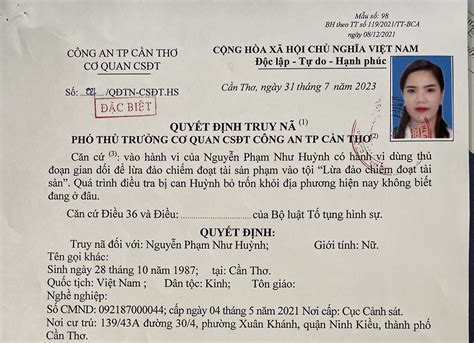 Mẫu số: 98
BH theo TT số 119/2021/TT-BCA
ngày 08/12/2021
CÔNG AN TP CẦN THƠ
CƠ QUAN CSĐT
CỘNG HÒA XÃ HỘI CHỦ NGHĨA VIỆT NAM
Độc lập - Tự do - Hạnh phúc
Số: /QĐTN-CSĐT.HS
Cần Thơ, ngày 31 tháng 7 năm 2023
ĐẶC BIỆT
QUYẾT ĐỊNH TRUY NÃ (1)
PHÓ THỦ TRƯỞNG CƠ QUAN CSĐT CÔNG AN TP CẦN THƠ(2)
Căn cứ (3): vào hành vi của Nguyễn Phạm Như Huỳnh có hành vi dùng thủ
đoạn gian dối để lừa đảo chiếm đoạt tài sản phạm vào tội “Lừa đảo chiếm đoạt tài
sản”. Quá trình điều tra bị can Huỳnh bỏ trốn khỏi địa phương hiện nay không biết
đang ở đâu.
Căn cứ Điều 36 và Điều: của Bộ luật Tố tụng hình sự.
QUYẾT ĐỊNH:
Truy nã đối với: Nguyễn Phạm Như Huỳnh; Giới tính: Nữ.
Tên gọi khác:
Sinh ngày 28 tháng 10 năm 1987; tại: Cần Thơ.
Quốc tịch: Việt Nam ; Dân tộc: Kinh; Tôn giáo:
Nghề nghiệp:
Số CMND: 092187000044; cấp ngày 04 tháng 5 năm 2021 Nơi cấp: Cục Cảnh sát.
Nơi cư trú: 139/43A đường 30/4, phường Xuân Khánh, quận Ninh Kiều, thành phố
Cần Thơ.